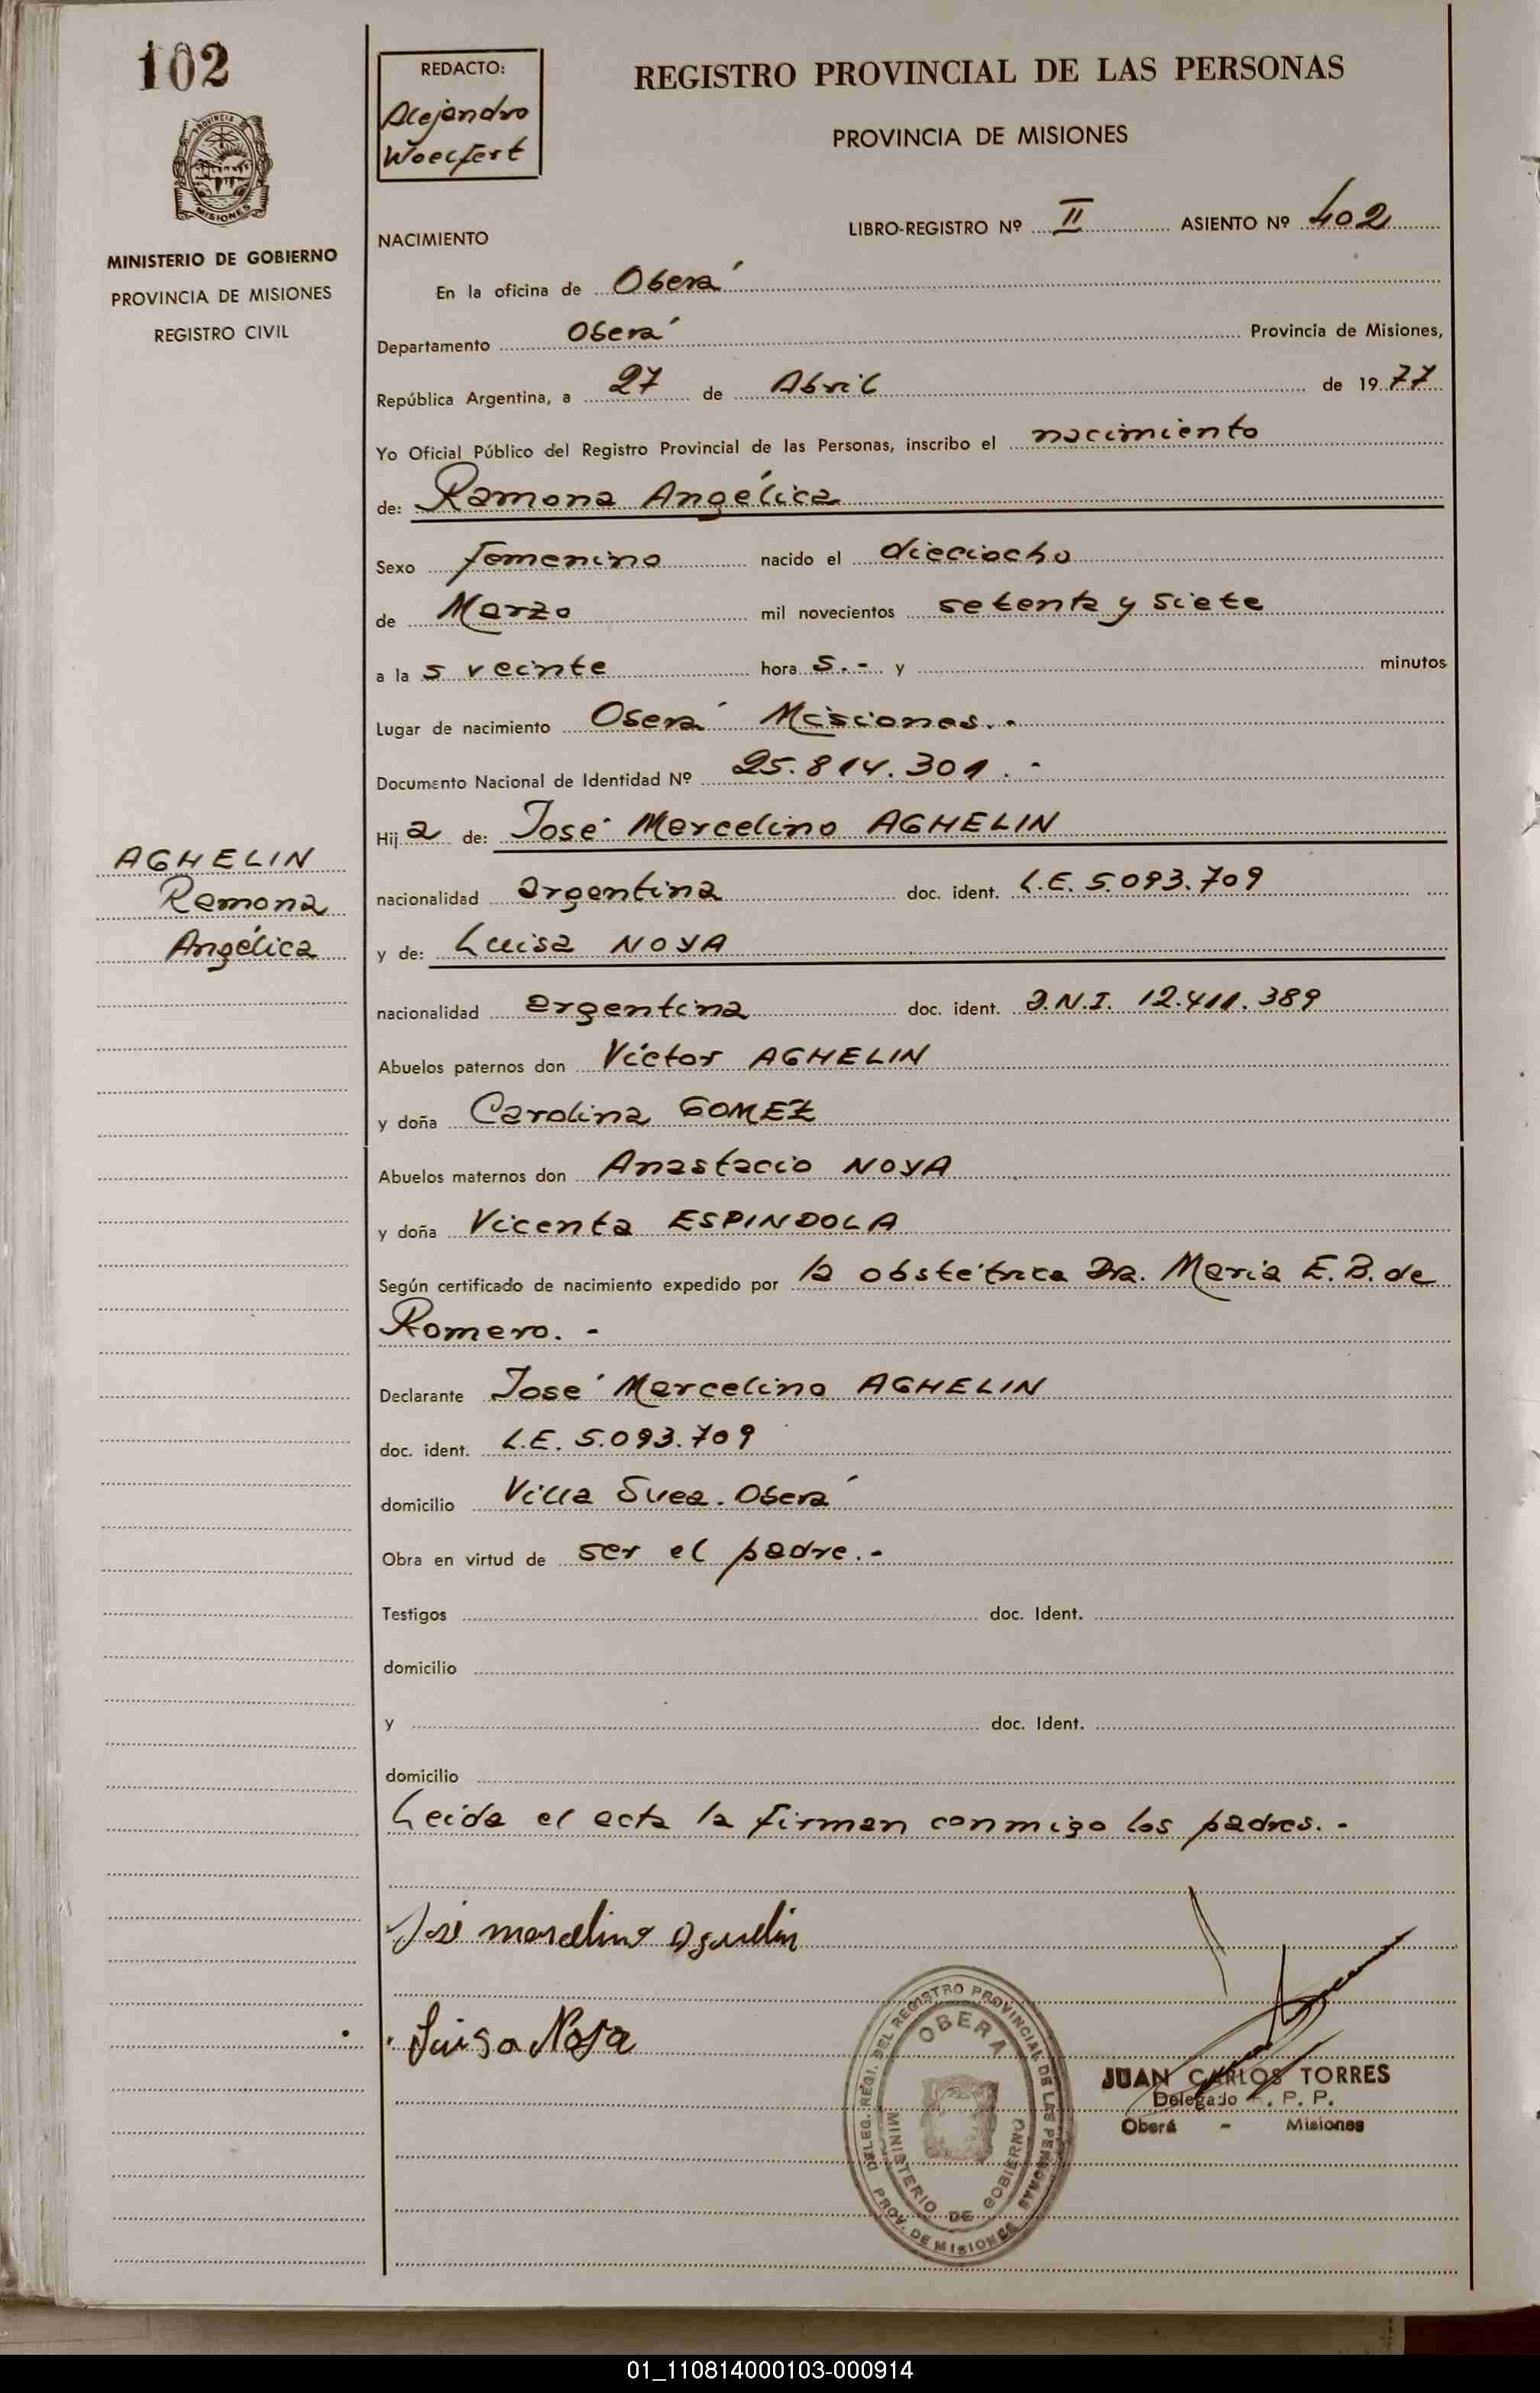 102
REDACTO:
Alejandro
Woelfert
REGISTRO PROVINCIAL DE LAS PERSONAS
PROVINCIA DE MISIONES
MISIONES
MINISTERIO DE GOBIERNO
PROVINCIA DE MISIONES
REGISTRO CIVIL
LIBRO-REGISTRO Nº II ASIENTO Nº 402
NACIMIENTO
En la oficina de Oberá
Departamento Oberá Provincia de Misiones,
República Argentina, a 27 de Abril de 1977
Yo Oficial Público del Registro Provincial de las Personas, inscribo el nacimiento
de: Ramona Angélica
Sexo femenino nacido el dieciocho
de Marzo mil novecientos setenta y siete
a la s veinte hora s.- y minutos
Lugar de nacimiento Oberá Misiones.-
Documento Nacional de Identidad Nº 25.814.301.-
Hija de: José Marcelino AGHELIN
nacionalidad argentina doc. ident. L.E. 5.093.709
y de: Luisa NOYA
nacionalidad argentina doc. ident. D.N.I. 12.411.389
Abuelos paternos don Víctor AGHELIN
y doña Carolina GOMEZ
Abuelos maternos don Anastacio NOYA
y doña Vicenta ESPINDOLA
Según certificado de nacimiento expedido por la obstétrica Dra. María E. B. de
Romero.-
Declarante José Marcelino AGHELIN
doc. ident. L.E. 5.093.709
domicilio Villa Svea. Oberá
Obra en virtud de ser el padre.-
Testigos doc. Ident.
domicilio
y doc. Ident.
domicilio
Leída el acta la firman conmigo los padres.-
AGHELIN
Ramona
Angélica
José marcelino Aguelin
Luisa Noya
DELEG. REGI. DEL REGISTRO PROVINCIAL DE LAS PERSONAS
OBERA
MINISTERIO DE GOBIERNO
PROV. DE MISIONES
JUAN CARLOS TORRES
Delegado . P. P.
Oberá - Misiones
01_110814000103-000914